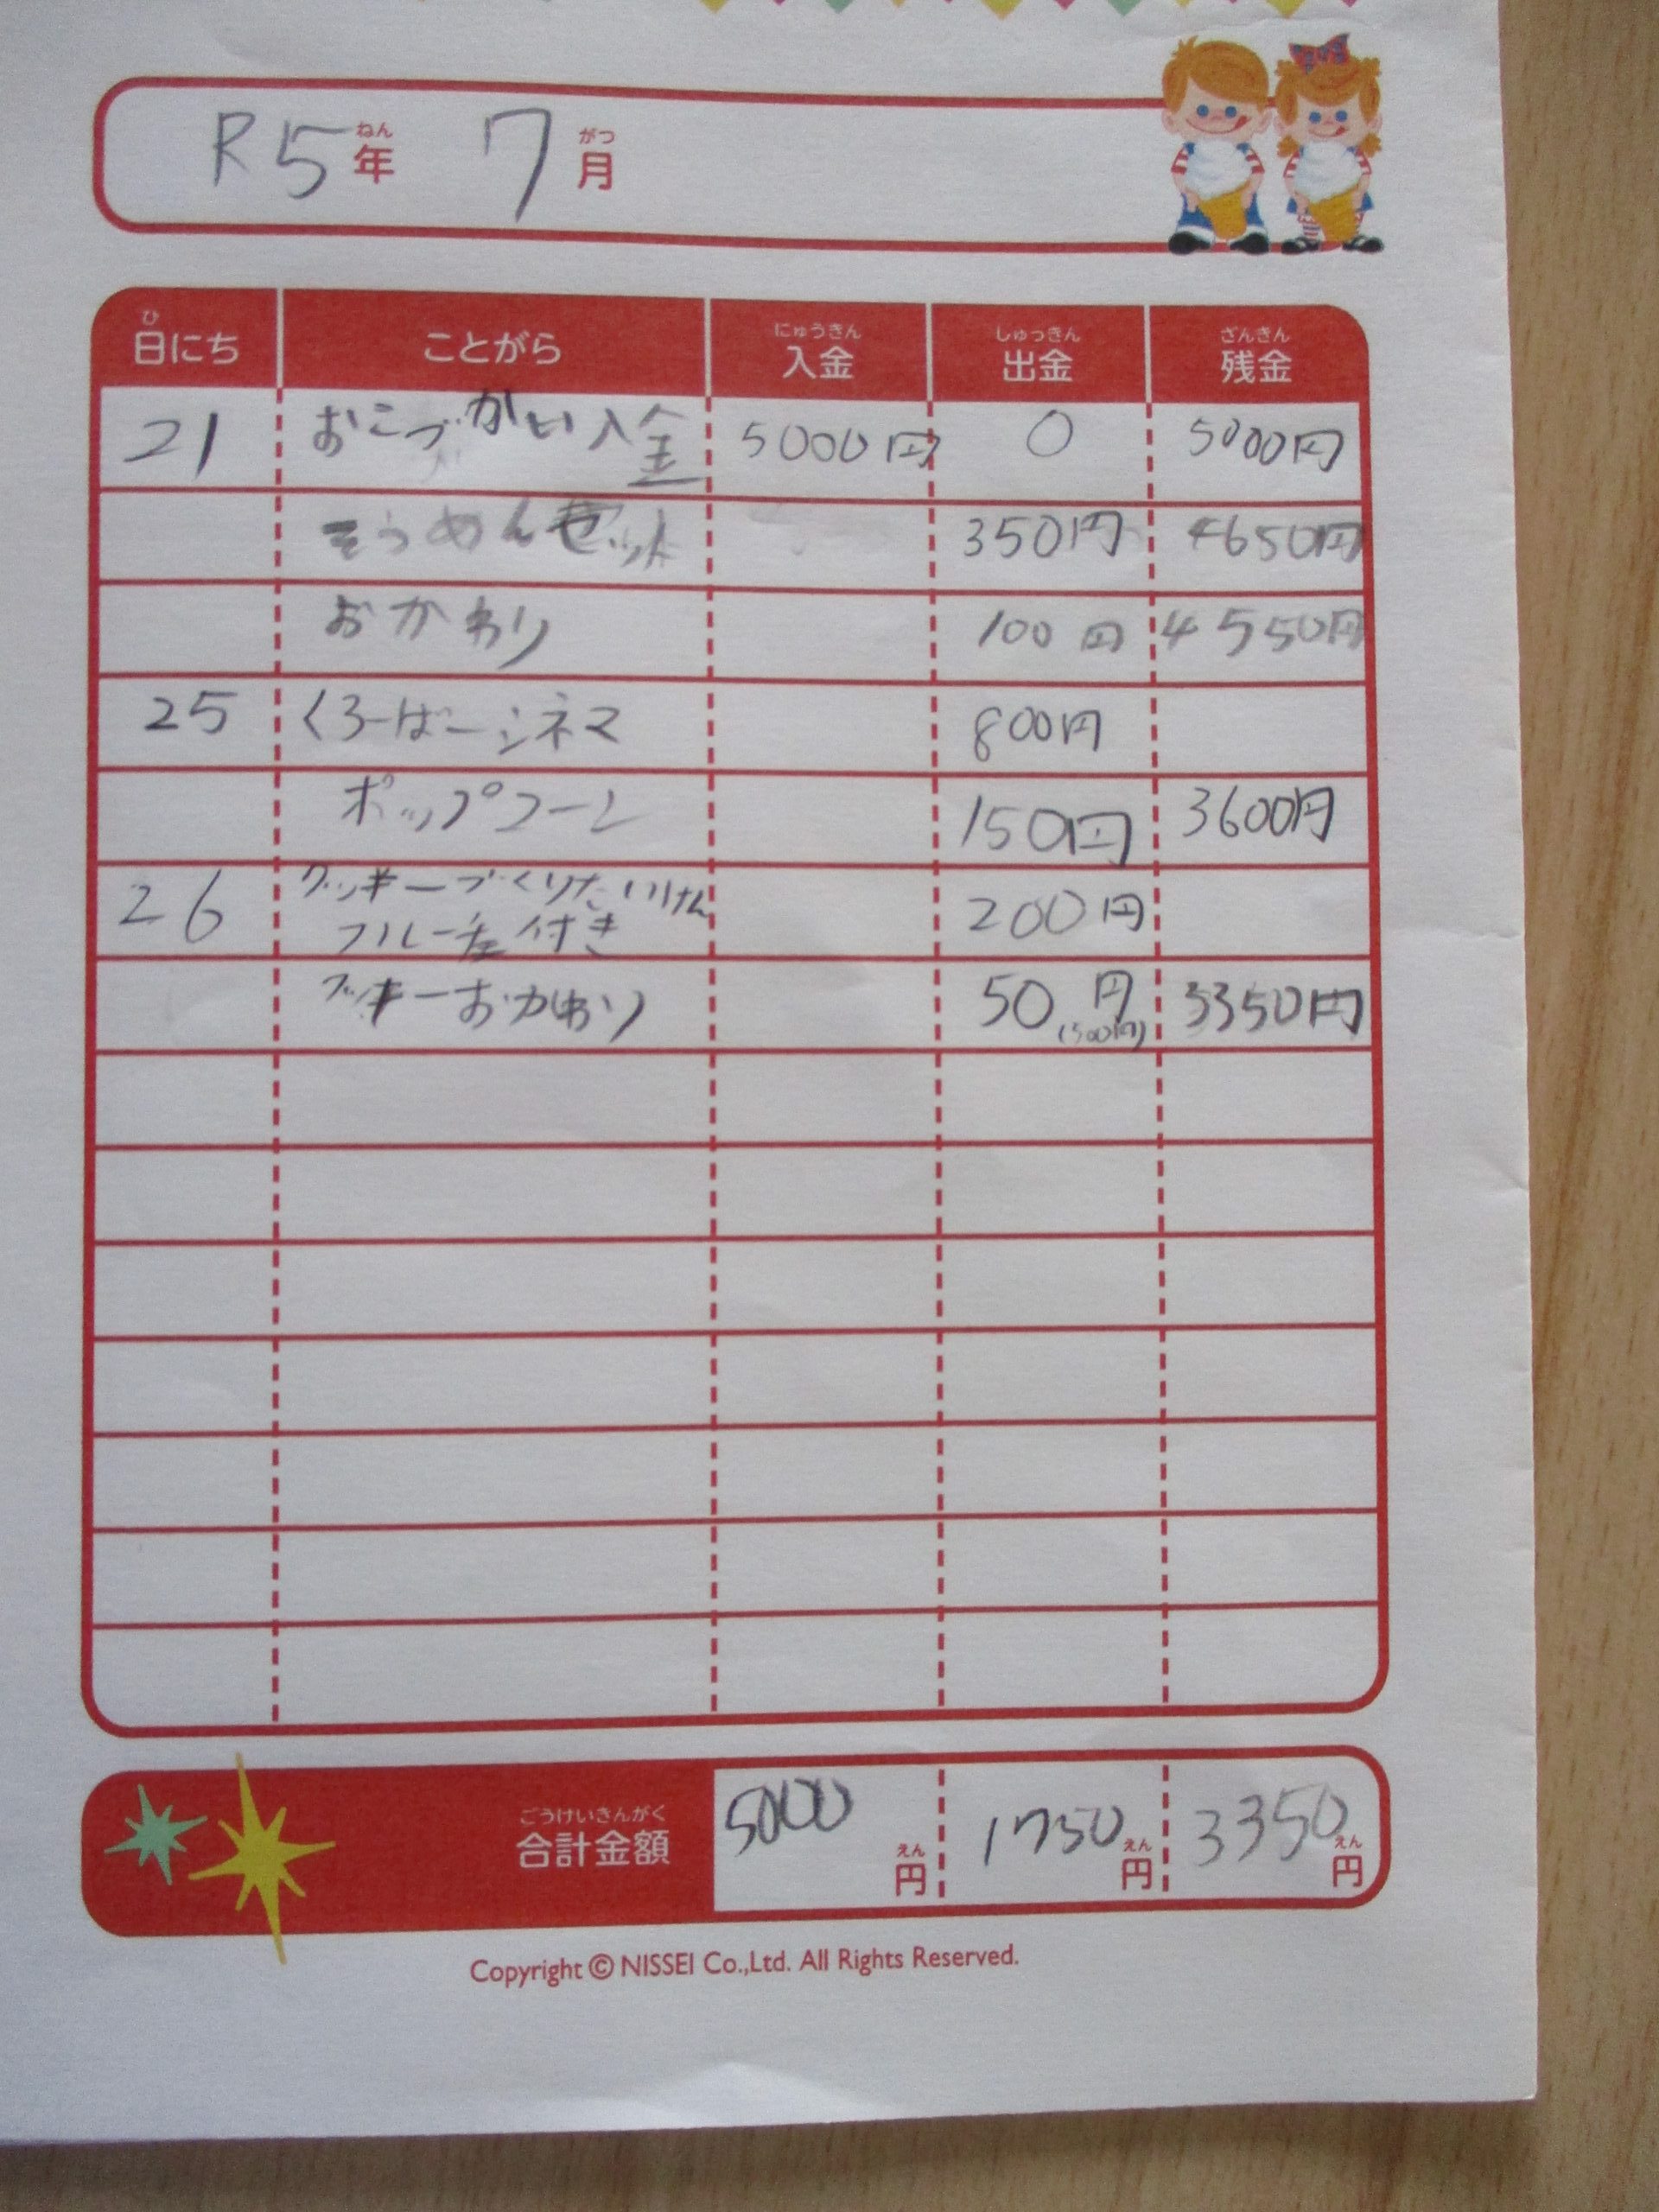 R5年 7月
日にち ことがら 入金 出金 残金
ひ にゅうきん しゅっきん ざんきん
21 おこづかい入金 5000円 0 5000円
そうめんセット 350円 4650円
おかわり 100円 4550円
25 くろーばーシネマ 800円
ポップコーン 150円 3600円
26 クッキーづくりたいけん 200円
フルーチェ付き
クッキーおかわり 50円 3350円
合計金額 5000円 1750円 3350円
ごうけいきんがく えん えん えん
Copyright © NISSEI Co.,Ltd. All Rights Reserved.